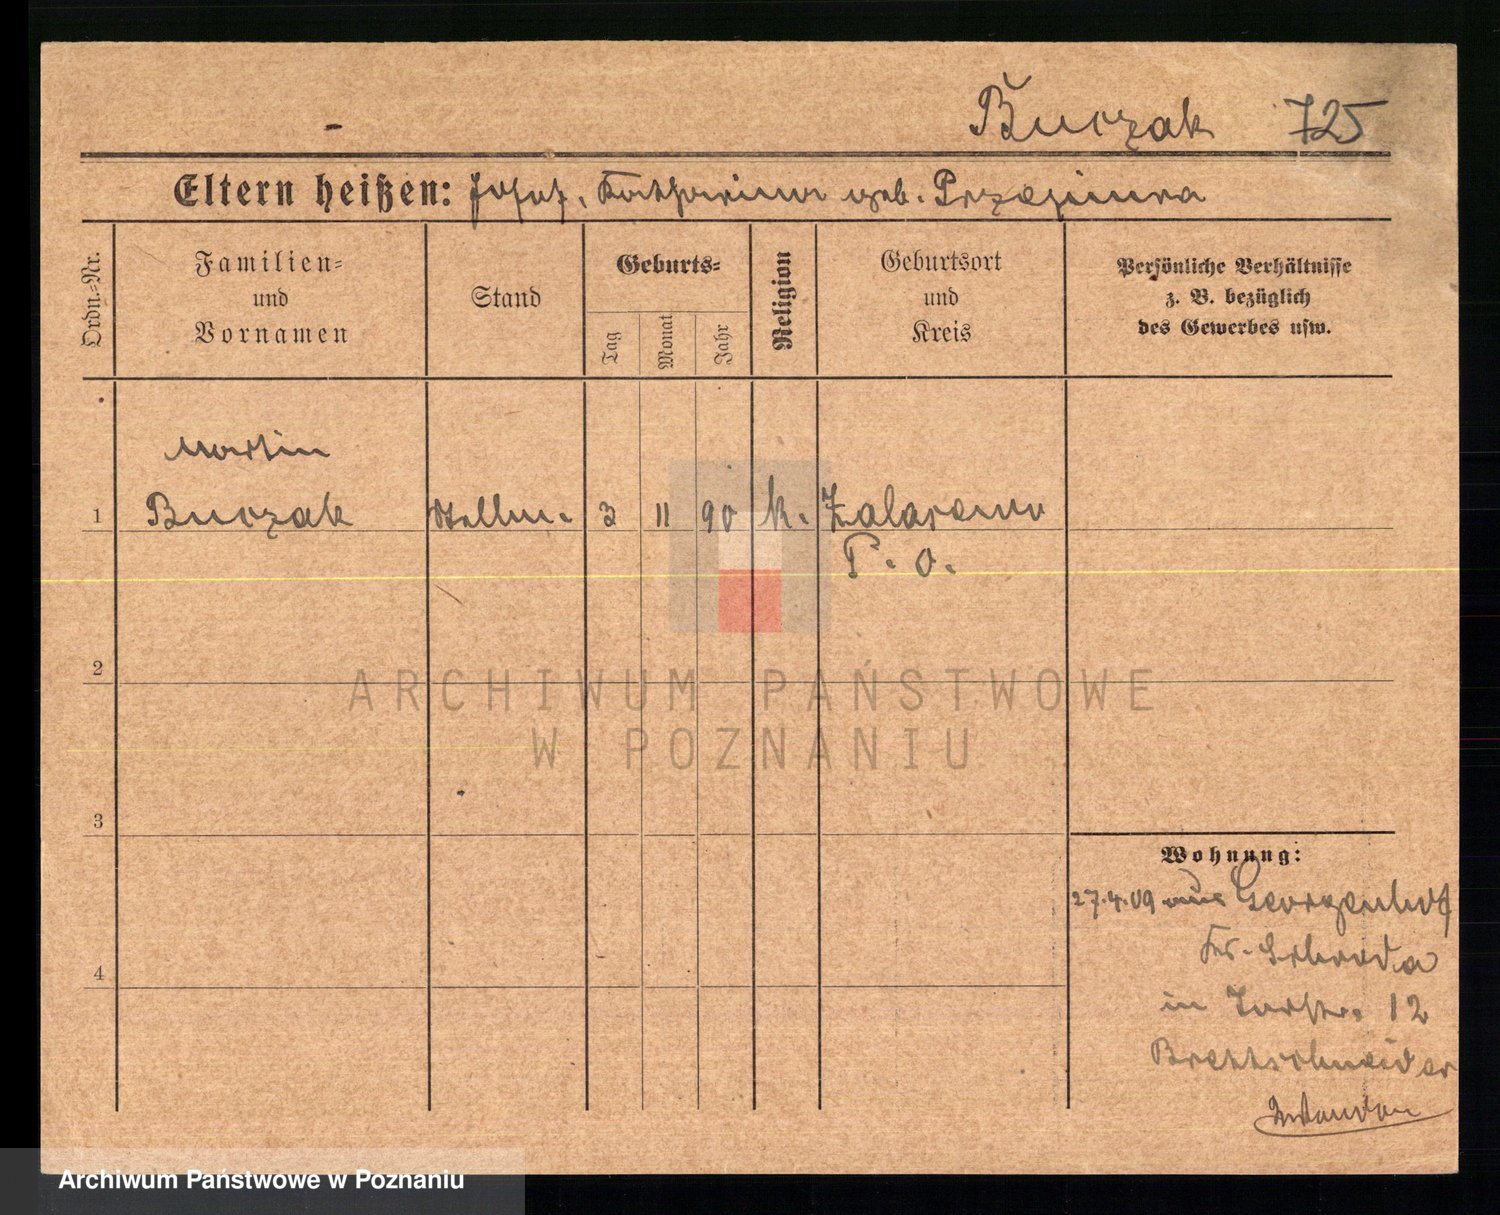 Buczak 725
Eltern heißen: Josef, Katharina geb.
Ordn.-Nr.
Familien-
und
Vornamen
Stand
Geburts-
Tag
Monat
Jahr
Religion
Geburtsort
und
Kreis
Persönliche Verhältnisse
z. B. bezüglich
des Gewerbes usw.
Martin
1 Buczak Stellm. 3 11 90 k.
P. O.
2
3
4
Wohnung:
27.4.09 aus Georgenhof
Kr. Schroda
in 12
Brettschneider
ARCHIWUM PAŃSTWOWE
W POZNANIU
Archiwum Państwowe w Poznaniu